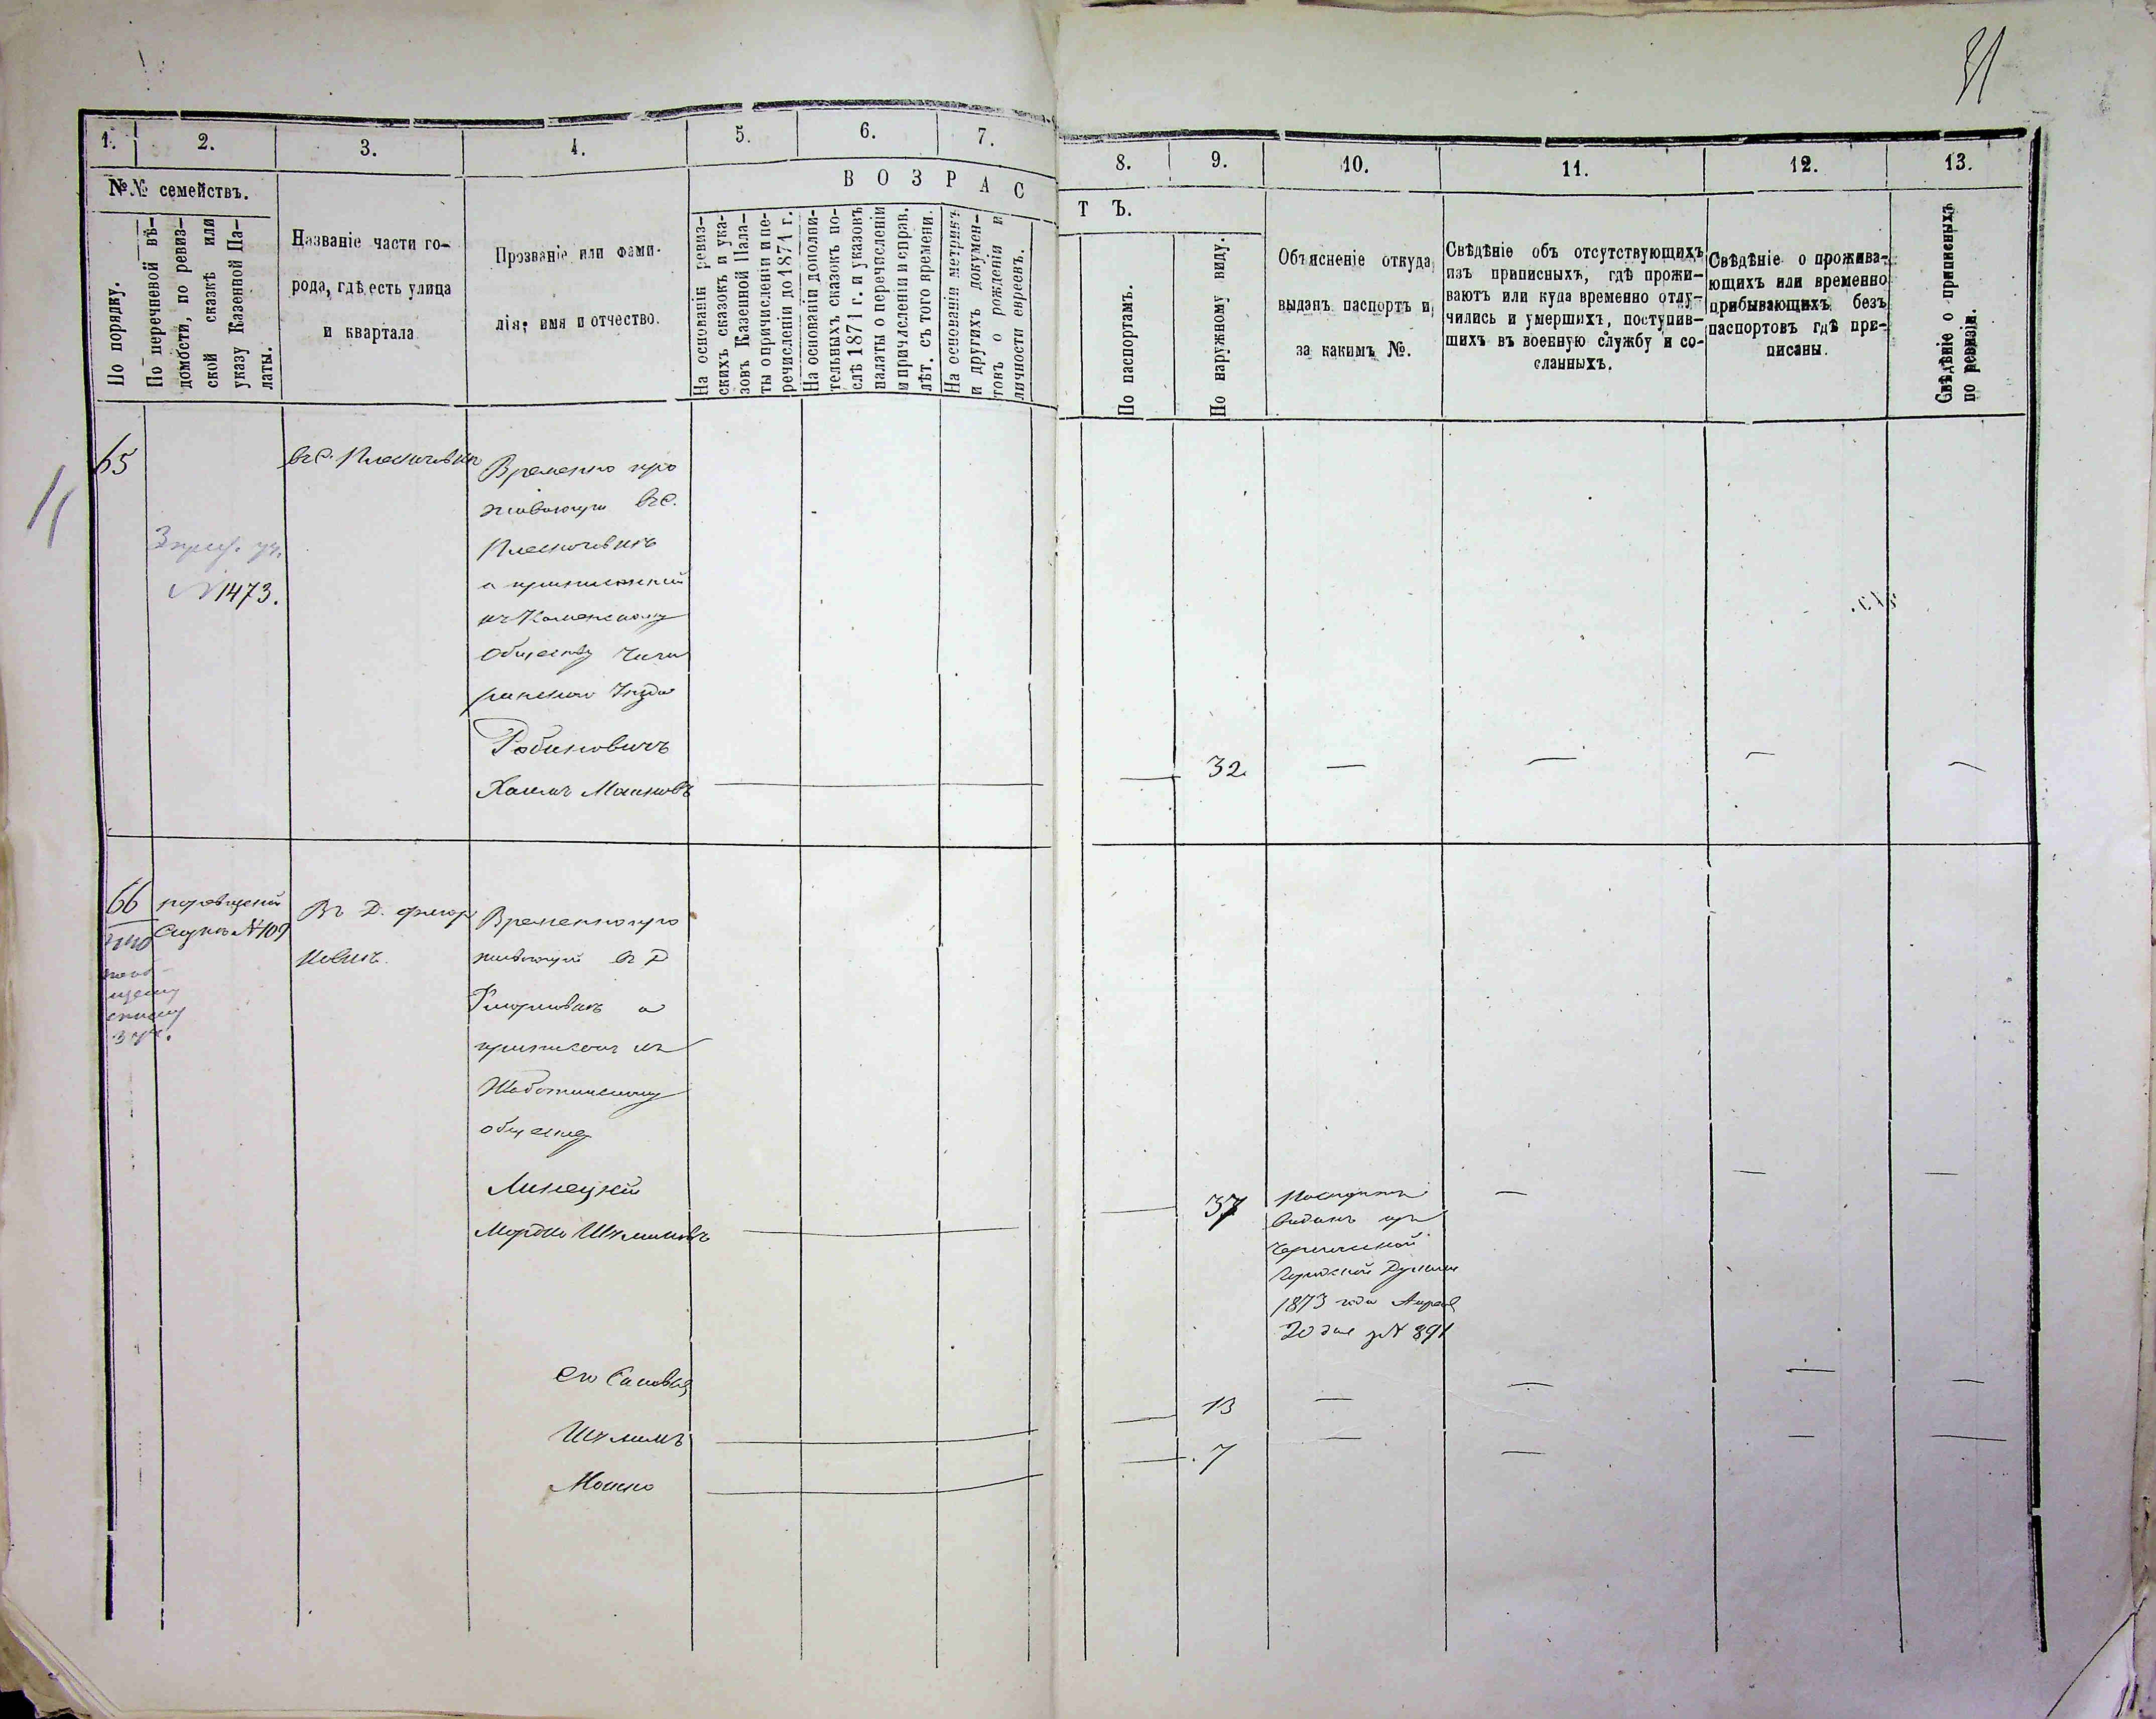 31
1.
2.
3.
4.
5.
6.
7.
8.
9.
10.
11.
12.
13.
№№ семействъ.
По порядку.
По перечневой вѣ-
домости, по ревиз-
ской сказкѣ или
указу Казенной Па-
латы.
Названіе части го-
рода, гдѣ есть улица
и квартала
Прозваніе или фами-
лія, имя и отчество.
ВОЗРАС
ТЪ.
На основаніи ревиз-
скихъ сказокъ и ука-
зовъ Казенной Пала-
ты о причисленіи и пе-
речисленіи до 1871 г.
На основаніи дополни-
тельныхъ сказокъ по-
слѣ 1871 г. и указовъ
палаты о перечисленіи
и причисленіи и справ.
лѣт. съ того времени.
На основаніи метрикъ
и другихъ докумен-
товъ о рожденіи и
личности евреевъ.
По паспортамъ.
По наружному виду.
Объясненіе откуда
выданъ паспортъ и
за какимъ №.
Свѣдѣніе объ отсутствующихъ
изъ приписныхъ, гдѣ прожи-
ваютъ или куда временно отлу-
чились и умершихъ, поступив-
шихъ въ военную службу и со-
сланныхъ.
Свѣдѣніе о прожива-
ющихъ или временно
прибывающихъ безъ
паспортовъ гдѣ при-
писаны.
Свѣдѣніе о приписныхъ
по ревизіи.
65
въ с.
Временно про
живающій въ с.
а приписанный
къ Каменскому
Обществу Чиги
ринскаго Уѣзда
Рабиновичъ
Хаимъ Мошковъ
32
3 уч.
№ 1473.
66
№ 109
Въ Д. Флор
ковкѣ
Временно про
живающій въ Д
Флорковкѣ а
приписанъ къ
Жаботинскому
обществу
Линецкій
Мордко Шулимовъ
37
Паспортъ
выданъ изъ
Городской Думы
1873 года Апреля
20 дня за № 891
его Сыновья
Шулимъ
13
Мошко
7